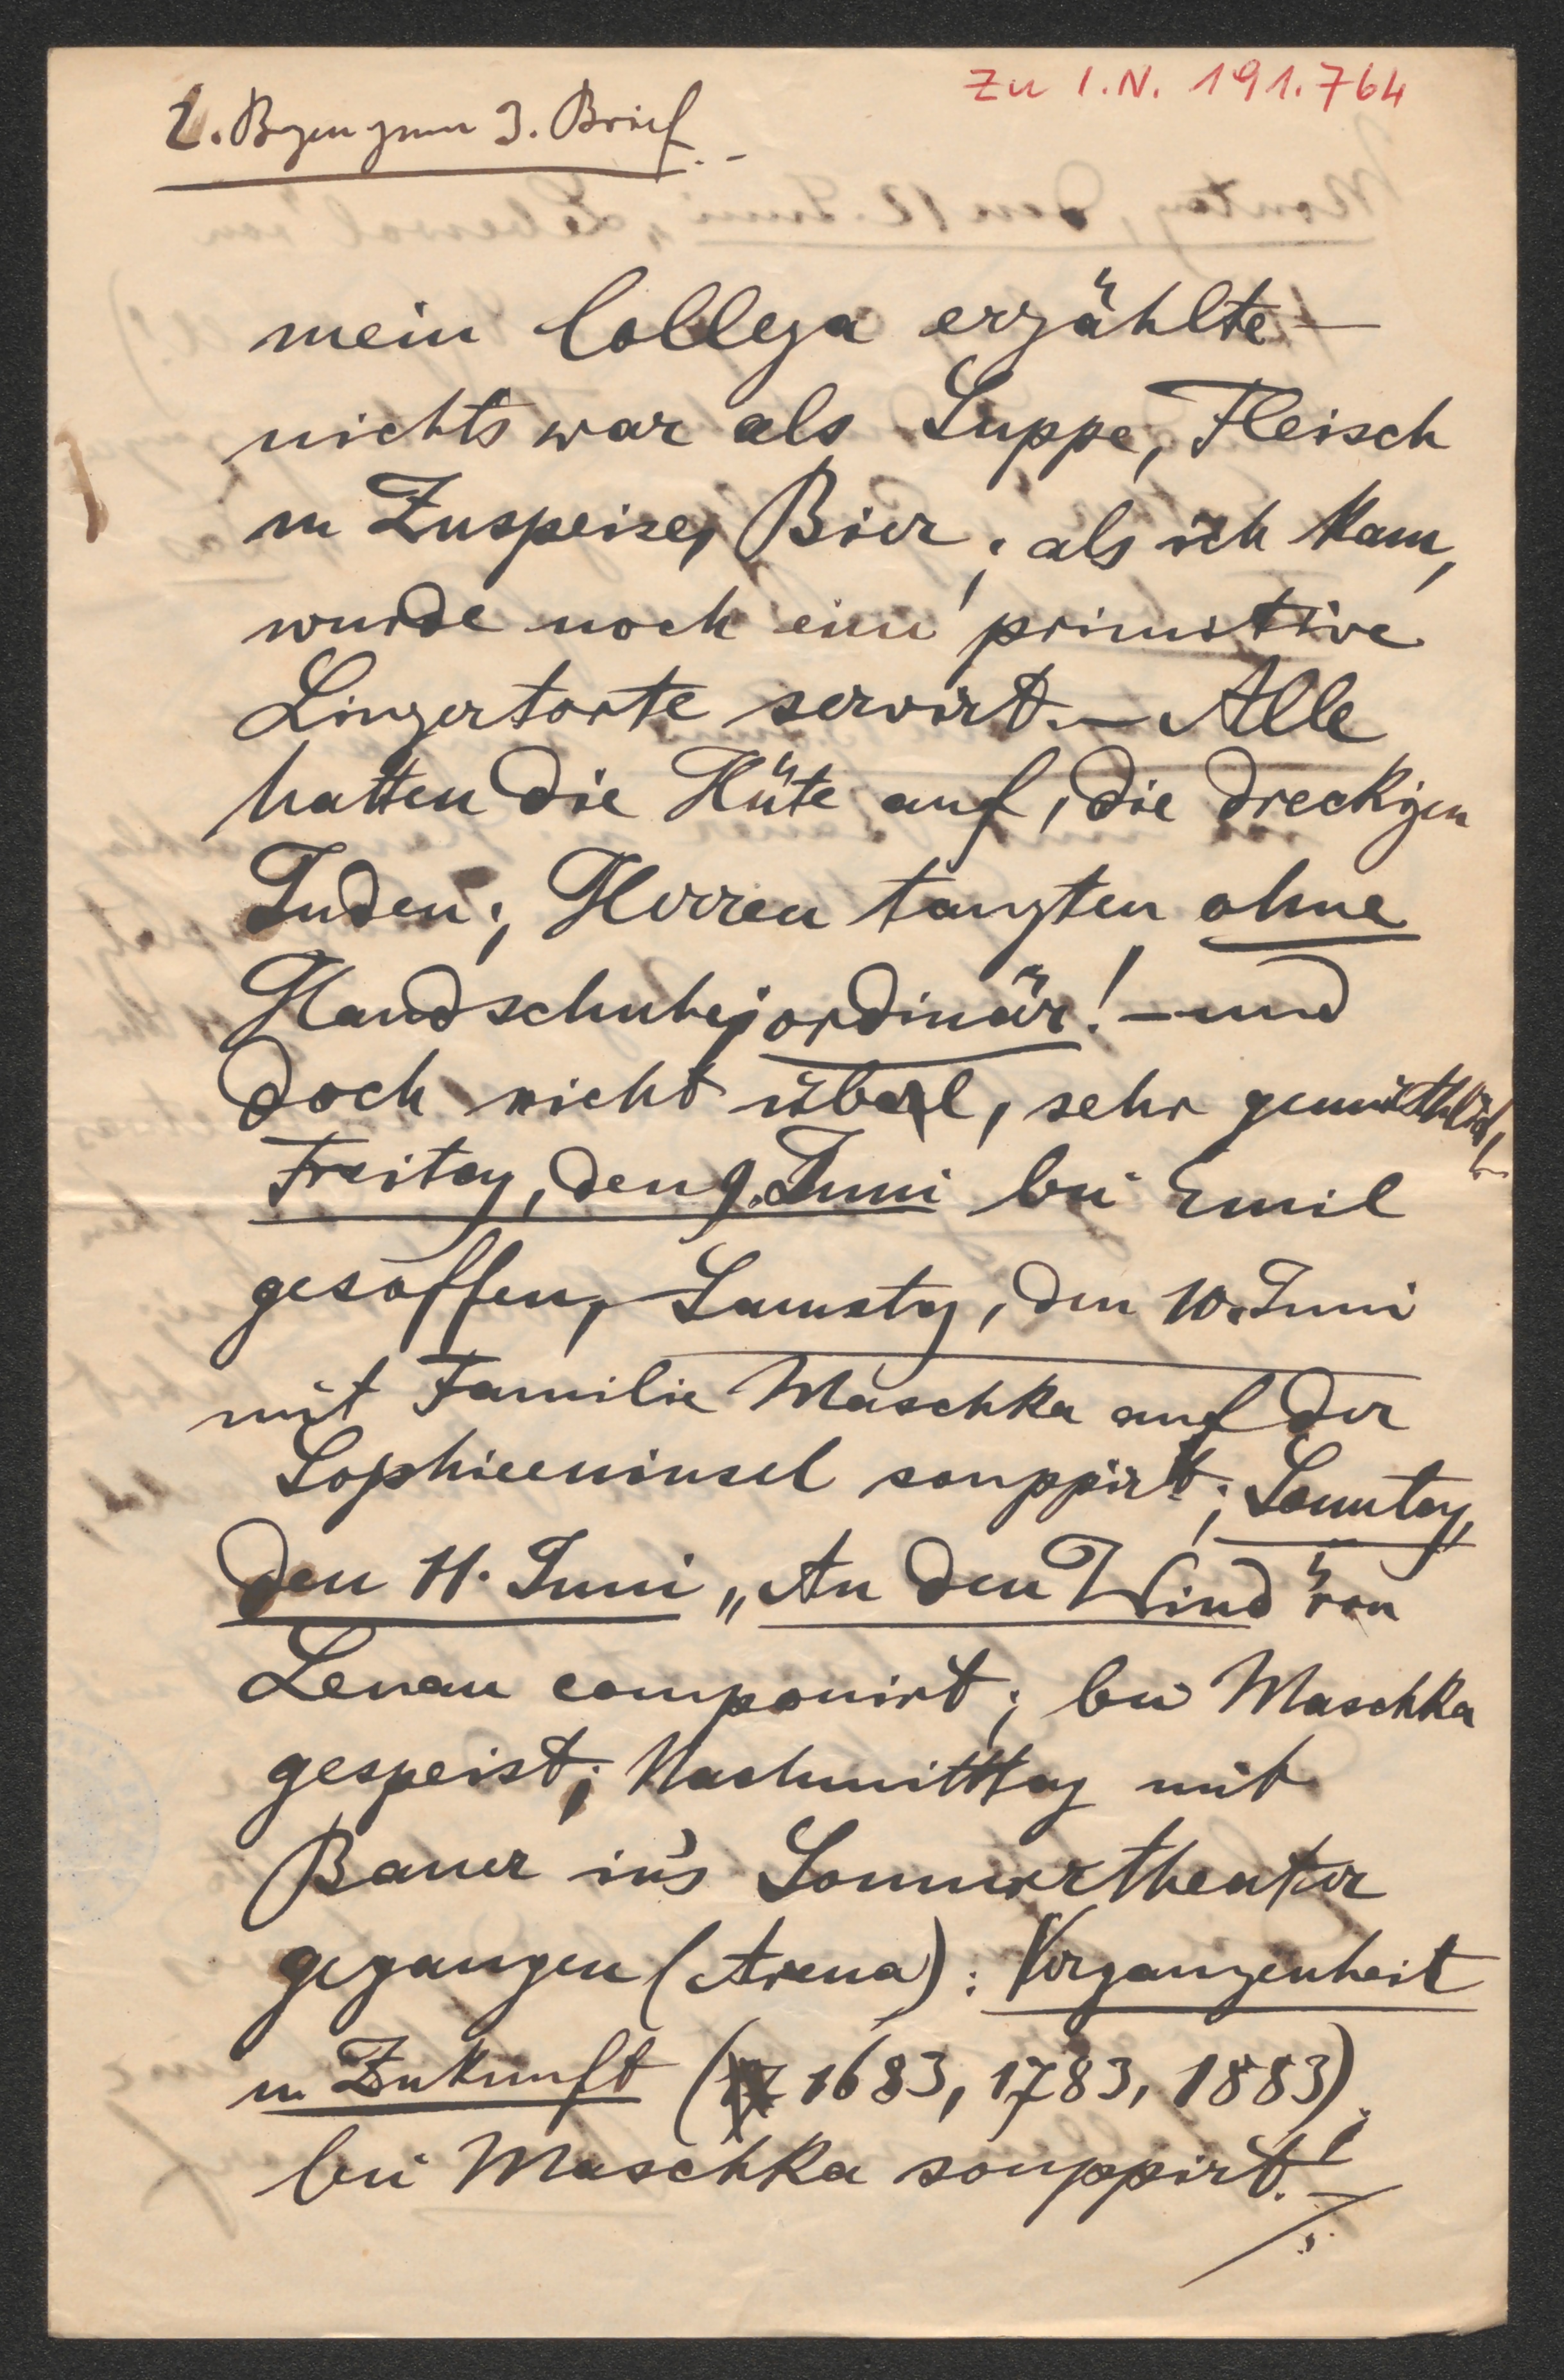 Zu I.N. 191.764
2. Bogen zum 3. Brief.-
mein Collega erzählte —
nichts war als Suppe, Fleisch
u Zuspeise, Bier; als ich kam,
wurde noch eine primitive
Linzertorte servirt. — Alle
hatten die Hüte auf, die dreckigen
Juden; Herren tanzten ohne
Handschuhe; ordinär! — und
doch nicht übel, sehr gemüthlich,
Freitag, den 9. Juni bei Emil
gesoffen, Samstag, den 10. Juni
mit Familie Maschka auf der
Sophieeninsel souppirt; Sonntag,
den 11. Juni „An den Wind" von
Lenau componirt; bei Maschka
gespeist; Nachmittag mit
Bauer in's Sommertheater
gegangen (Arena): Vergangenheit
u Zukunft (1683, 1783, 1883);
bei Maschka souppirt! —